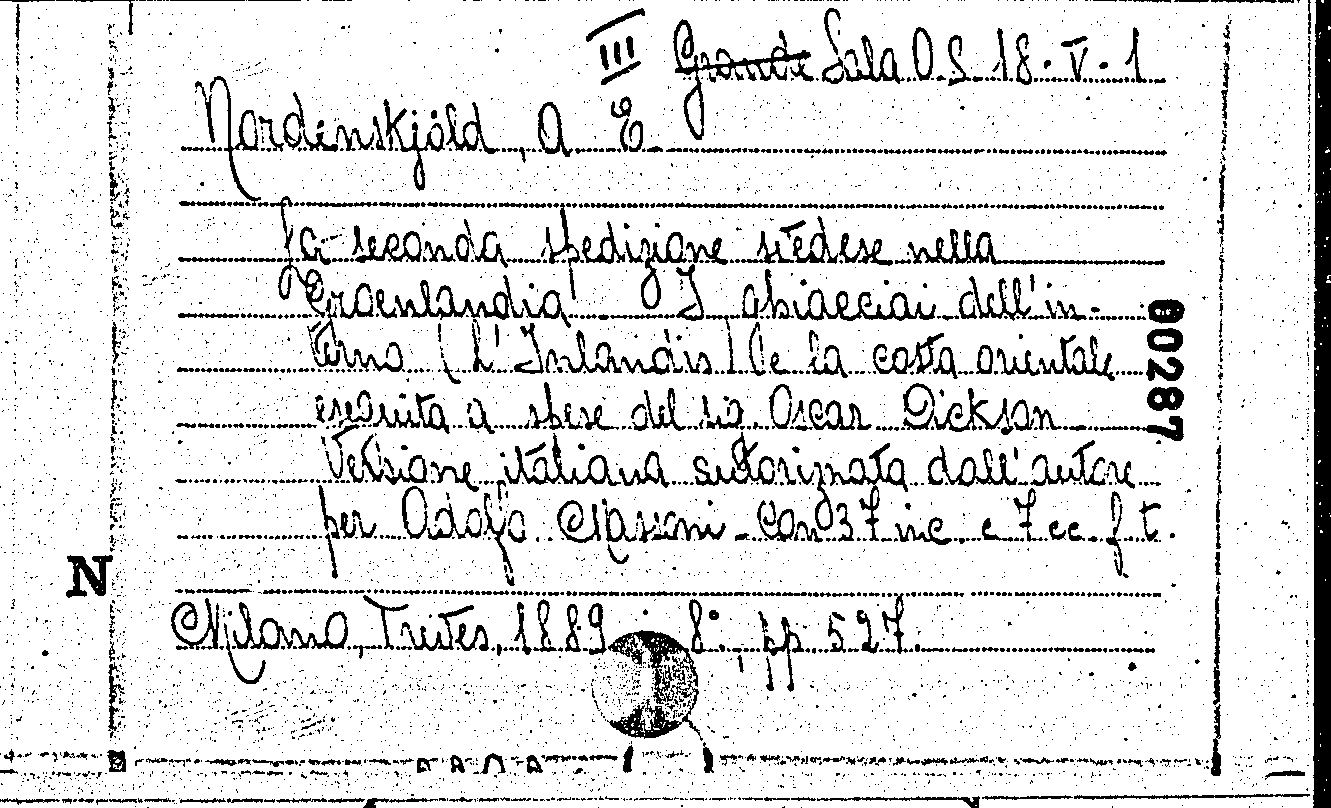 III Grande Sala O.S. 18. V. 1
Nordenskjöld, A. E.
La seconda spedizione svedese nella
Groenlandia. I ghiacciai dell'in-
terno (L'Inlandis) e la costa orientale
eseguita a spese del sig. Oscar Dickson
Versione italiana autorizzata dall'autore
per Adolfo Massoni. Con 37 inc. e 7 cc. f. t.
Milano, Treves, 1889 8°, pp. 527.
N
00287